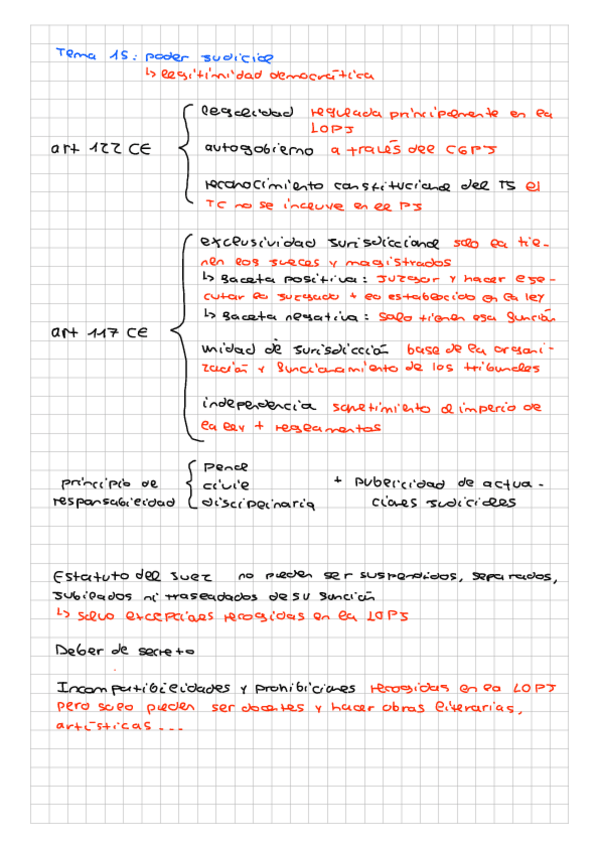 Tema 15: poder judicial
↳ legitimidad democrática
legalidad regulada principalmente en la
LOPJ
art 122 CE
autogobierno a través del CGPJ
reconocimiento constitucional del TS el
TC no se incluye en el PJ
exclusividad jurisdiccional solo la tie-
nen los jueces y magistrados
↳ faceta positiva: juzgar y hacer eje-
cutar lo juzgado + lo establecido en la ley
↳ faceta negativa: solo tienen esa función
art 117 CE
unidad de jurisdicción base de la organi-
zación y funcionamiento de los tribunales
independencia sometimiento al imperio de
la ley + reglamentos
principio de responsabilidad
penal
civil
disciplinaria
+ publicidad de actua-
ciones judiciales
Estatuto del juez no pueden ser suspendidos, separados,
jubilados ni trasladados de su función
↳ salvo excepciones recogidas en la LOPJ
Deber de secreto
Incompatibilidades y prohibiciones recogidas en la LOPJ
pero solo pueden ser docentes y hacer obras literarias,
artísticas ...